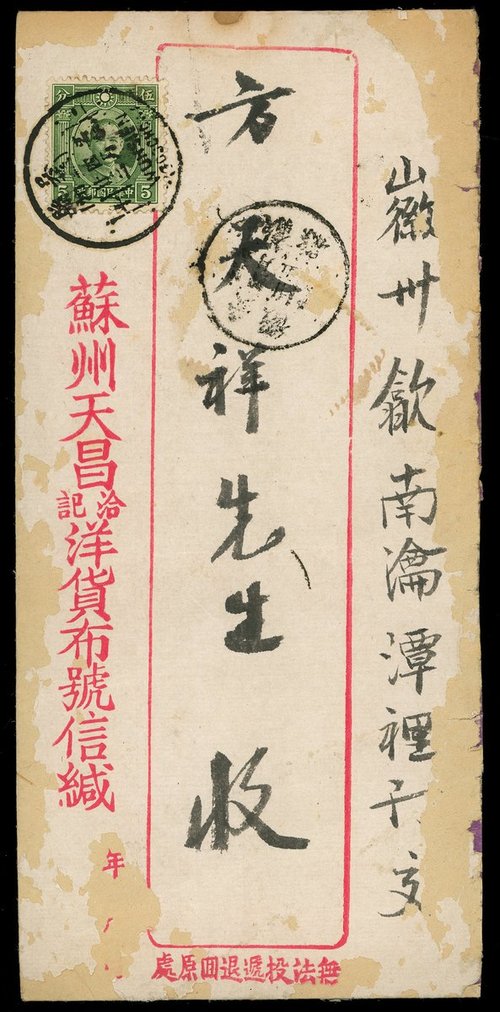 山徽州歙南瀹潭裡干交
方天祥先生收
蘇州天昌洽記洋貨布號信緘
年
無法投遞退回原處
伍分
中華民國郵政
5 5